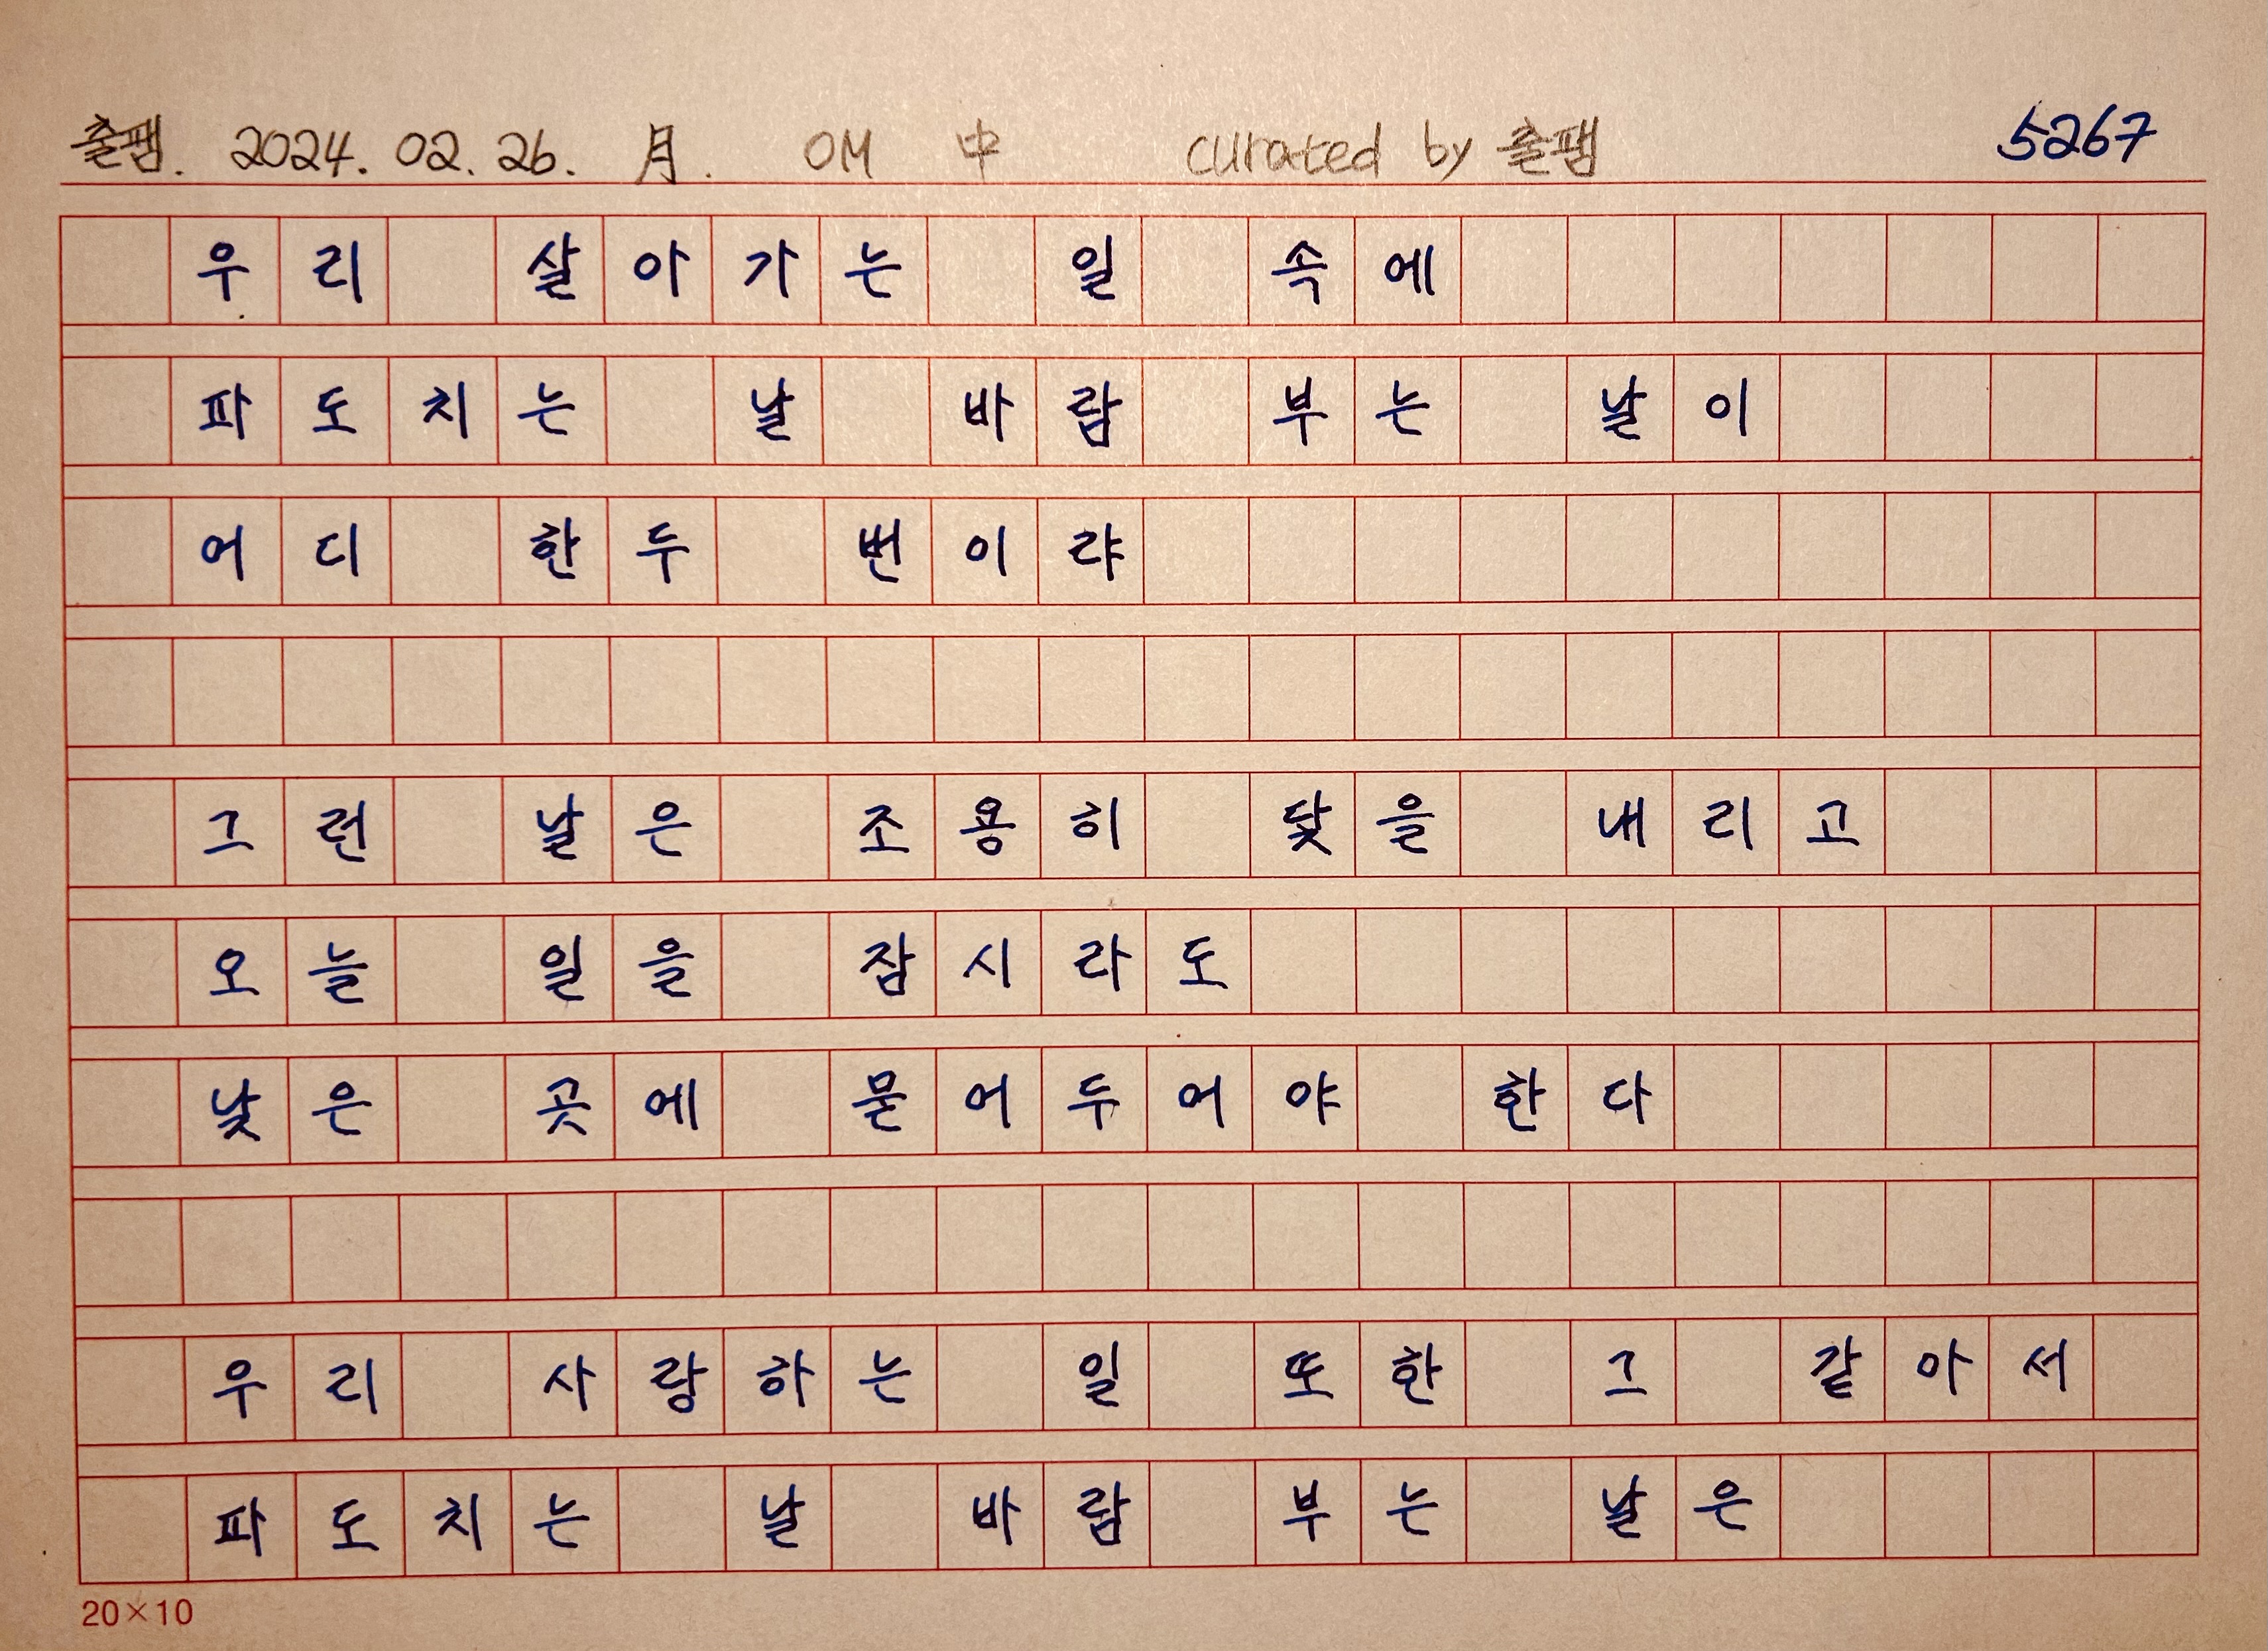 출팸. 2024. 02. 26. 月. OM 中 curated by 출팸 5267
우리 살아가는 일 속에
파도치는 날 바람 부는 날이
어디 한두 번이랴
그런 날은 조용히 닻을 내리고
오늘 일을 잠시라도
낮은 곳에 묻어두어야 한다
우리 사랑하는 일 또한 그 같아서
파도치는 날 바람 부는 날은
20×10